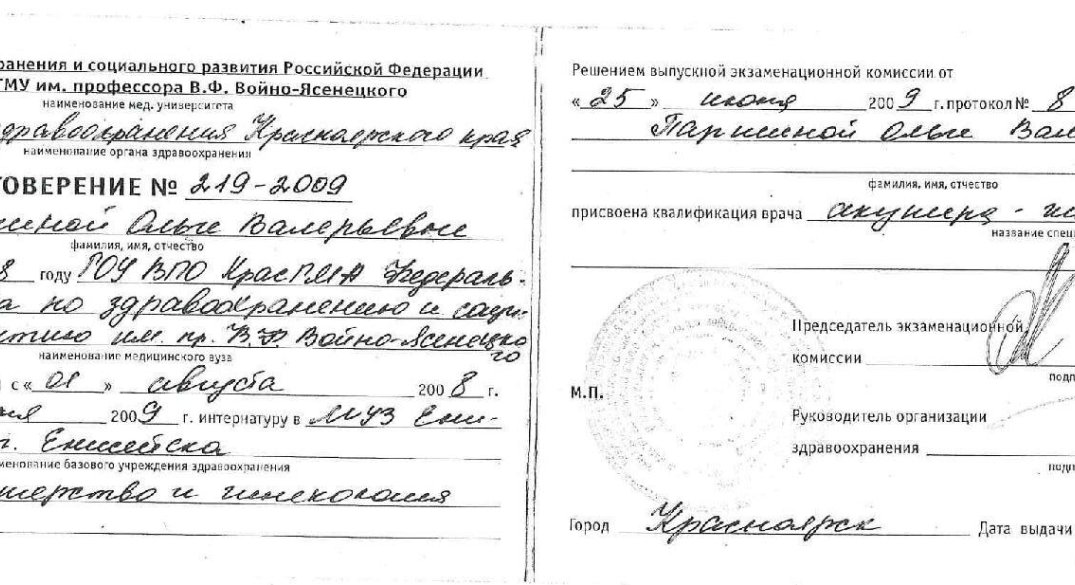 ранения и социального развития Российской Федерации
ГМУ им. профессора В.Ф. Войно-Ясенецкого
наименование мед. университета
дравоохранения Красноярского края
наименование органа здравоохранения
ТОВЕРЕНИЕ № 219-2009
шиной Ольге Валерьевне
фамилия, имя, отчество
8 году ГОУ ВПО КрасГМА Федераль-
а по здравоохранению и соци-
итию им. пр. В.Ф. Войно-Ясенецко
го
наименование медицинского вуза
с « 01 » августа 2008 г.
2009 г. интернатуру в МУЗ Ени-
г. Енисейска
менование базового учреждения здравоохранения
шерство и гинекология
Решением выпускной экзаменационной комиссии от
« 25 » июня 2009 г. протокол № 8
Паршиной Ольге Вале
фамилия, имя, отчество
присвоена квалификация врача акушера -
название спец
Председатель экзаменационной
комиссии
подп
М.П.
Руководитель организации
здравоохранения
подп
Город Красноярск Дата выдачи